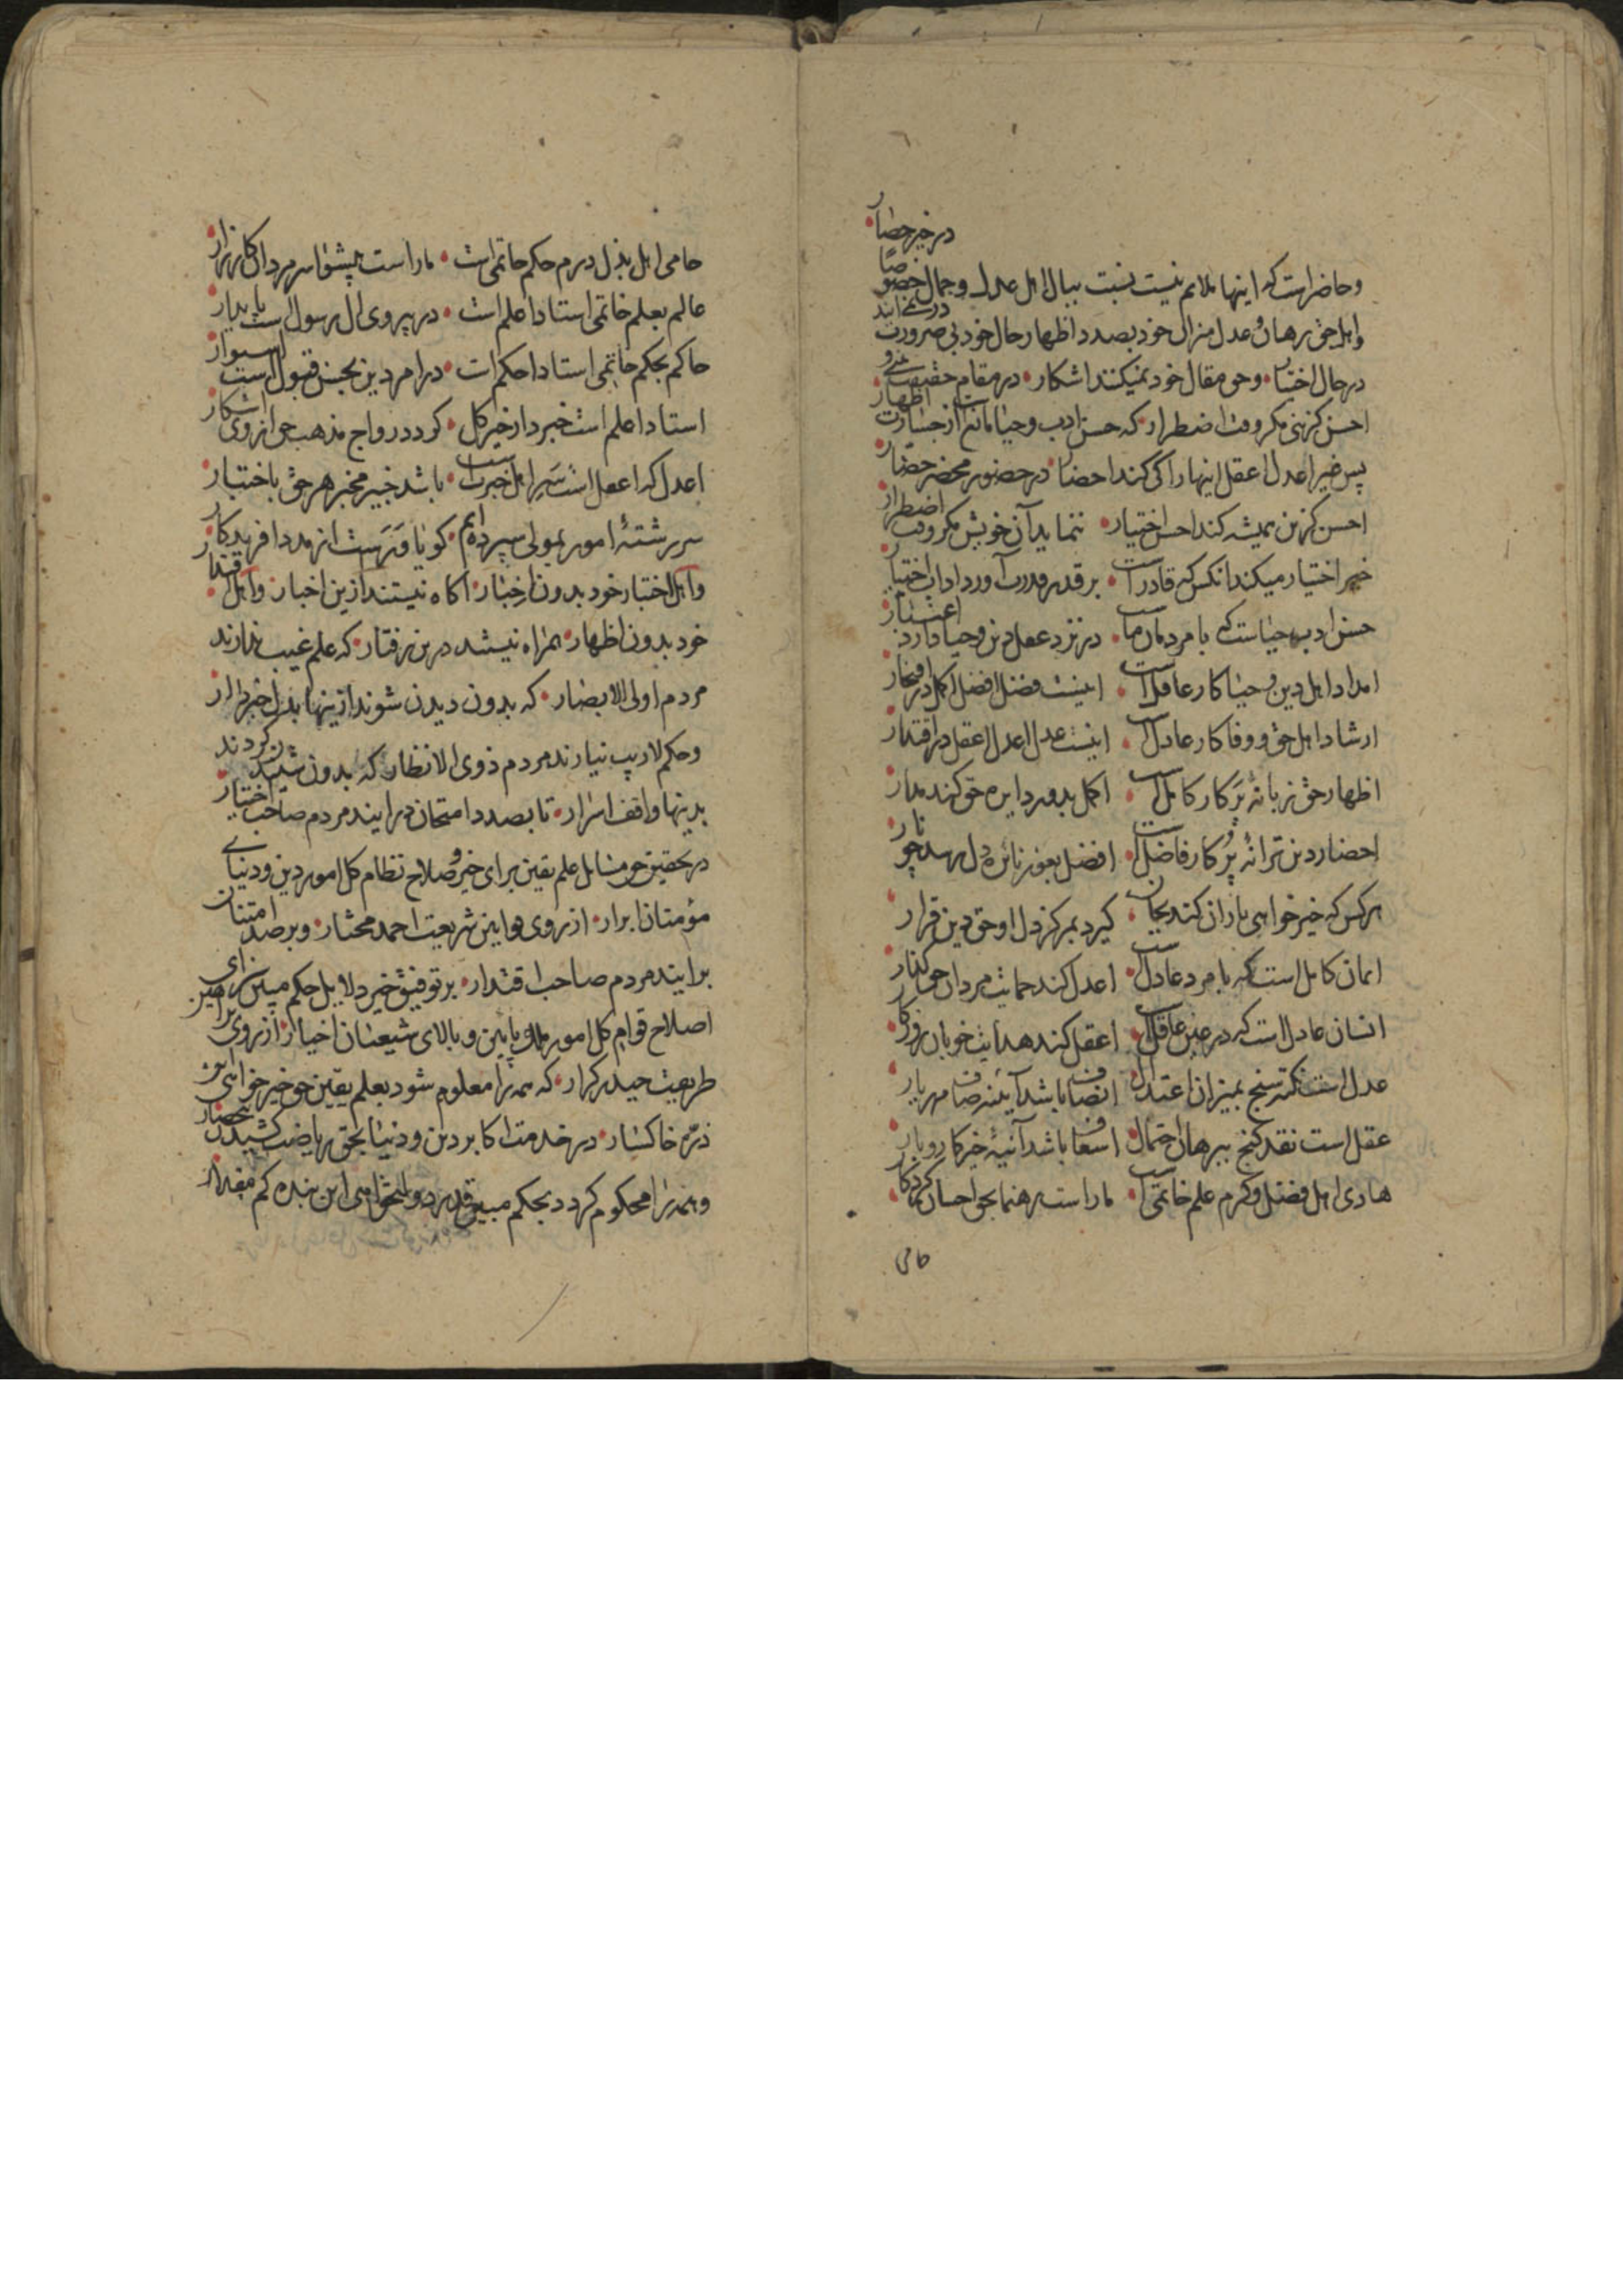 در خیر حضار
وحاضر است که اینها ملایم نیست نسبت ببال اهل عدل وجمال خصوصا
واهل حق برهان وعدل منزال خود بصدد اظهار حال خود بی ضرورت در نمی ایند
در حال اختیار وحق مقال خود نمیکنند اشکار در مقام حقیقت
احسن کزینی مکر وقت اضطرار که حسن ادب وحیا مانع از جسارت اظهار
پس غیر اعدل اعقل اینها را کی کند احضار در حضور محضر حضار
احسن کزین همیشه کند احسن اختیار ننماید آن خویش مکر وقت اضطرار
خیر اختیار میکند انکس که قادر است بر قدر قدرت آورد اداب اختیار
حسن ادب حیاست که با مردمان ماست در نزد عقل دین وحیا دارد اعتبار
امداد اهل دین وحیا کار عاقل است اینست فضل افضل اکمل در افتخار
ارشاد اهل حق ووفا کار عادل است اینست عدل اعدل اعقل در اقتدار
اظهار حق زبانهٔ پَرکار کامل است اکمل بدور دایره حق کند مدار
احضار دین ترانهٔ پُرکار فاضل است افضل بعون نائره دل رسد
هر کس که خیر خواهی یاران کند بجان کیرد بمرکز دل او حق دین قرار
ایمان کامل است که با مرد عادل است اعدل کند حمایت مردان حق کذار
انسان عادل است که در عین عاقل است اعقل کند هدایت خوبان روزکار
عدل است نکته سنج بمیزان اعتدال انصاف باشد آینه صاف مهر یار
عقل است نقد کنج ببرهان احتمال اسعاف باشد آنیهٔ خیر کاروبار
هادی اهل فضل وکرم علم خاتمی است ما راست رهنما بحق احسان کردکار
حامی
حامی اهل بذل درم حکم حاتمی است ما راست پیشوا سر مردان کارزار
عالم بعلم خاتمی استاد اعلم است در پیروی ال رسول است پایدار
حاکم بحکم حاتمی استاد احکم است در امر دین بحسن قبول است استوار
استاد اعلم است خبردار خیر کل کردد رواج مذهب حق از وی اشکار
اعدل که اعقل است سَیَر اهل خبرت است باشد خبیر مخبر هر حق باختیار
سر رشتهٔ امور بمولی سپرده ایم کویا وَرَست از مدد افریدکار
واهل اختبار خود بدون اِخبار اکاه نیستند ازین اخبار واهل اقتدار
خود بدون اظهار همراه نیستند درین رفتار که علم غیب ندارند
مردم اولی الابصار که بدون دیدن شوند ازینها بدل خبردار
وحکم لاریب نیارند مردم ذوی الانظار که بدون شنیدن کردند
بدینها واقف اسرار تا بصدد امتحان در ایند مردم صاحب اختیار
در تحقیق حق مسایل علم یقین برای خیر وصلاح نظام کل امور دین ودنیای
مؤمنان ابرار از روی قوانین شریعت احمد مختار وبر صدد امتنان
بر ایند مردم صاحب اقتدار بر توفیق خیر دلایل حکم مبین برای
اصلاح قوام کل امور پایین وبالای شیعیان اخیار از روی براهین
طریقت حیدر کرار که همه را معلوم شود بعلم یقین حق خیر خواهی این
ذرّه خاکسار در خدمت اکابر دین ودنیا بحق ریاضت کشیدن
وهمه را محکوم کردد بحکم مبین قدر دولتخواهی این بنده کم مقدار